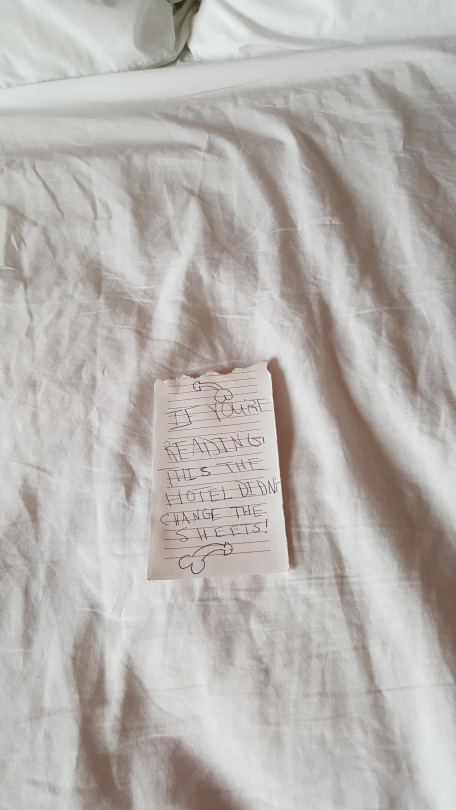 IF YOU'RE
READING
THIS THE
HOTEL DIDN'T
CHANGE THE
SHEETS!